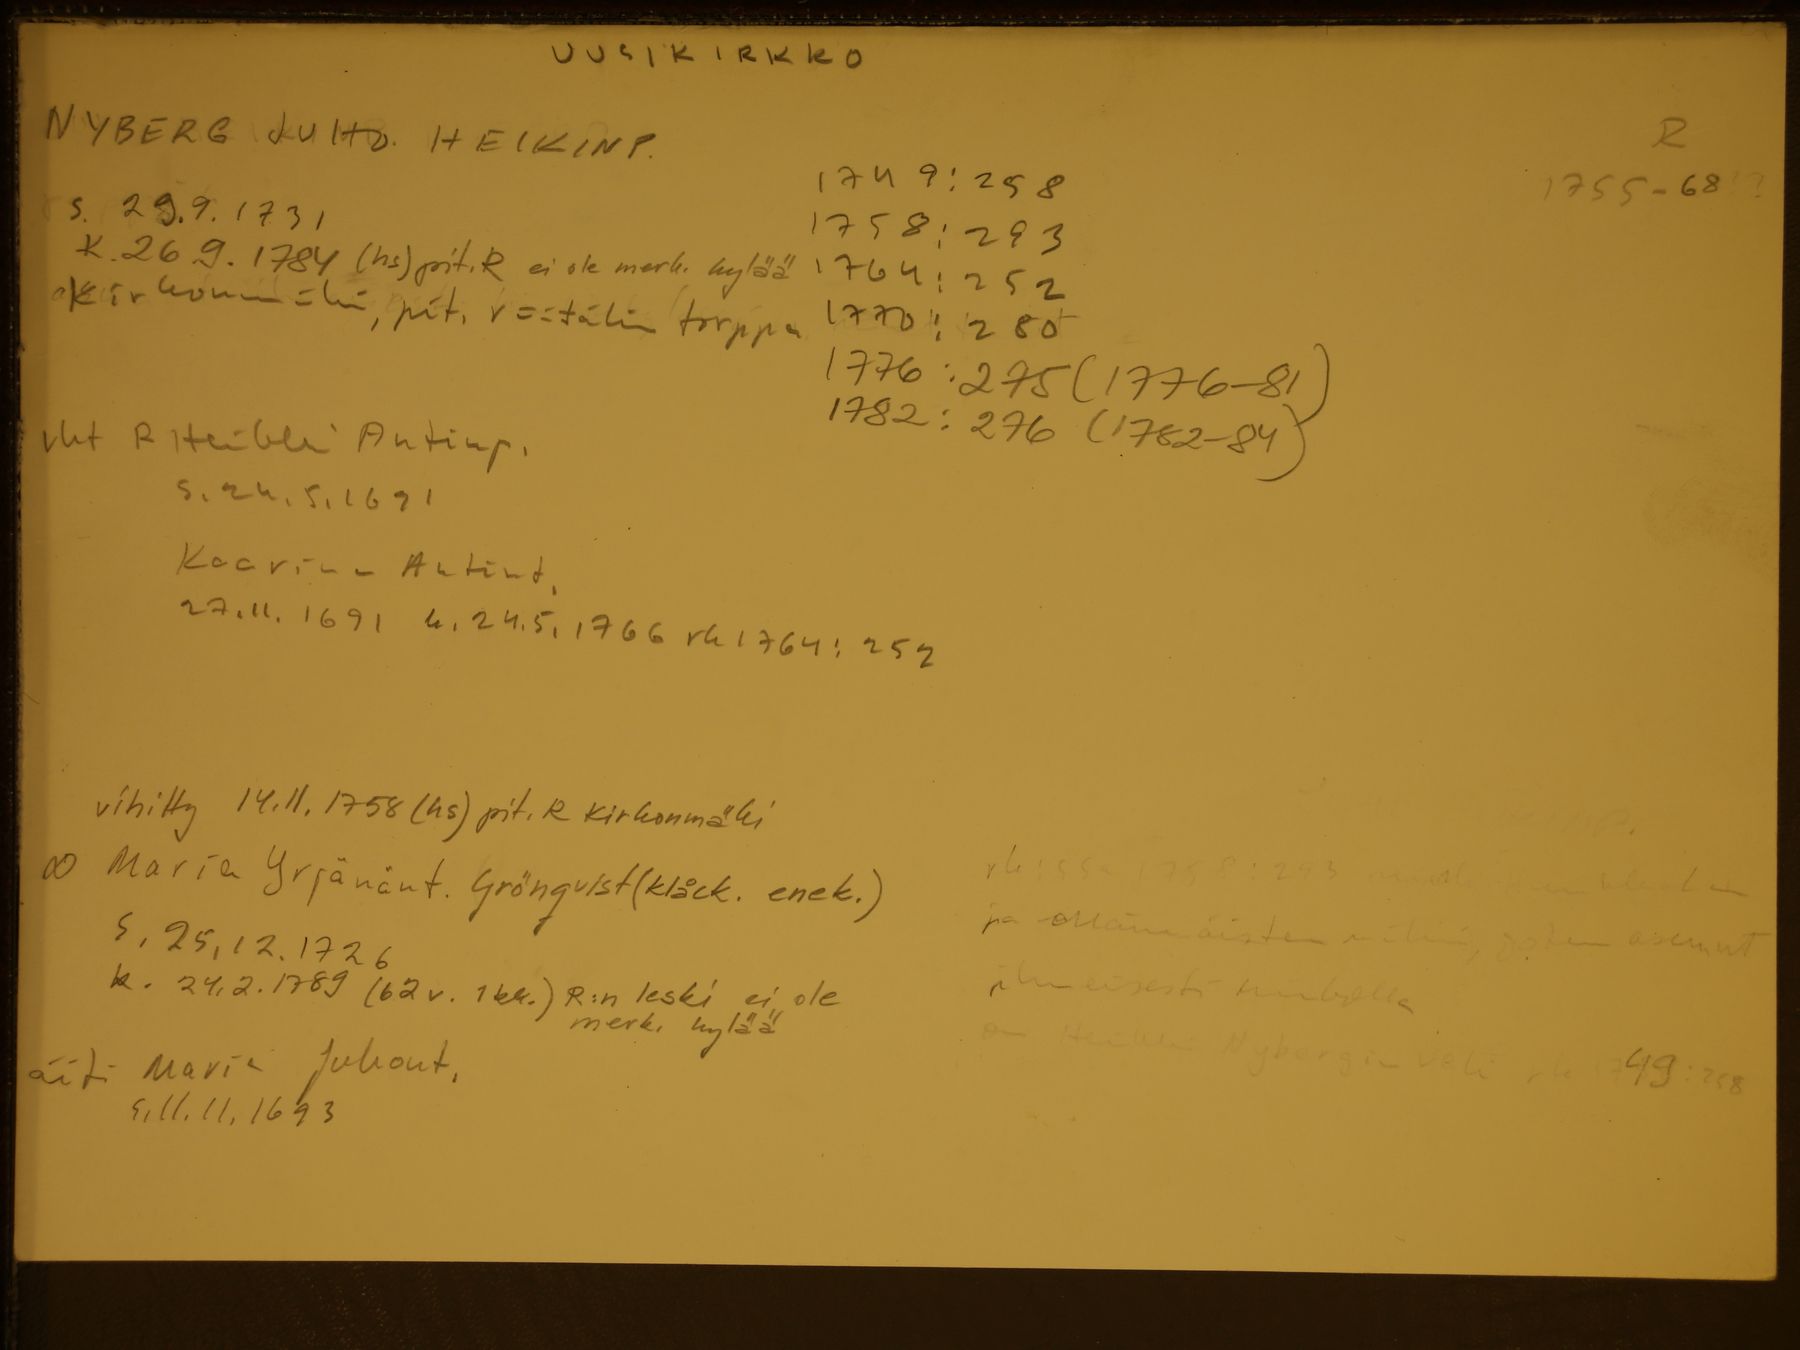 UUSIKIRKKO
NYBERG JUHO HEIKINP.
R
1755-68
s. 29.9.1731
k. 26.9.1784 (hs) pit. R ei ole merk. kylää
Kirkonmäki, pit. räätälin torppa
1749:258
1758:293
1764:252
1770:280
1776:275 (1776-81)
1782:276 (1782-84)
vht R Heikki Antinp.
s. 24.5.1691
Kaarina Antint.
27.11.1691 k. 24.5.1766 rk 1764:252
vihitty 14.11.1758 (hs) pit. R Kirkonmäki
∞ Maria Yrjänänt. Grönqvist (klåck. enek.)
s. 25.12.1726
k. 24.2.1789 (62 v. 1 kk.) R:n leski ei ole
merk. kylää
äiti Maria Juhont.
s. 11.11.1693
rk:ssa 1758:293
ja
asunut
ilmeisesti
on Heikki Nybergin veli rk 1749:258